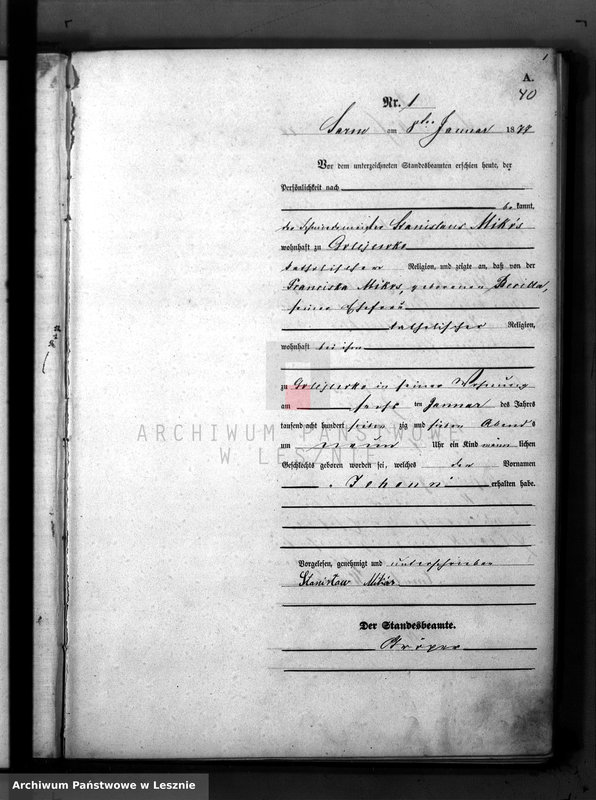 1
A.
40
Nr. 1
Sarne am 8ten Januar 1877
Vor dem unterzeichneten Standesbeamten erschien heute, der
Persönlichkeit nach
be kannt,
der Schmiedemeister Stanislaus Mikós
wohnhaft zu Golejewko
katholischer Religion, und zeigte an, daß von der
Franciska Mikos, geborenen
seiner Ehefrau
katholischer Religion,
wohnhaft bei ihm
zu Golejewko in seiner Wohnung
am sechs ten Januar des Jahres
tausend acht hundert sieben zig und sieben Abends
um neun Uhr ein Kind männ lichen
Geschlechts geboren worden sei, welches den Vornamen
Johann erhalten habe.
Vorgelesen, genehmigt und unterschrieben
Stanisław Mikós
Der Standesbeamte.
ARCHIWUM PAŃSTWOWE
W LESZNIE
Archiwum Państwowe w Lesznie